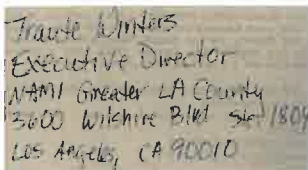 Traute Winters
Executive Director
NAMI Greater LA County
3600 Wilshire Blvd Ste 1804
Los Angeles, CA 90010